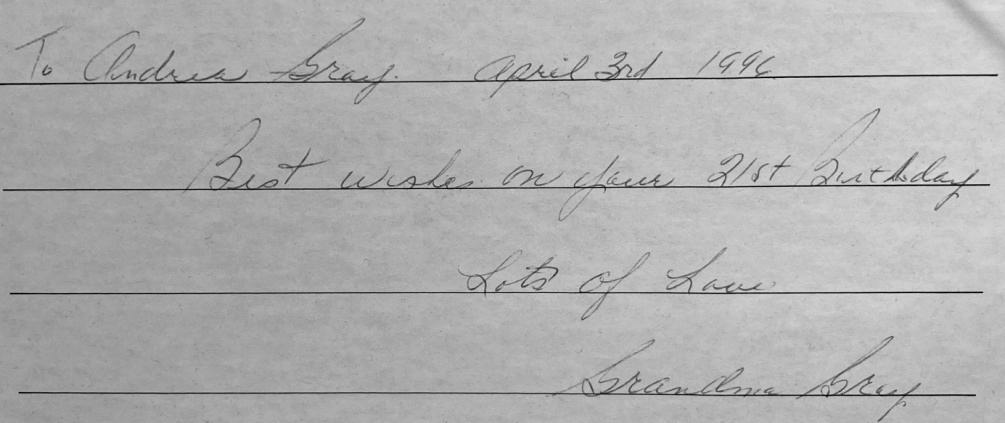 To Andrea Gray. April 3rd 1996
Best wishes on your 21st Birthday
Lots of Love
Grandma Gray